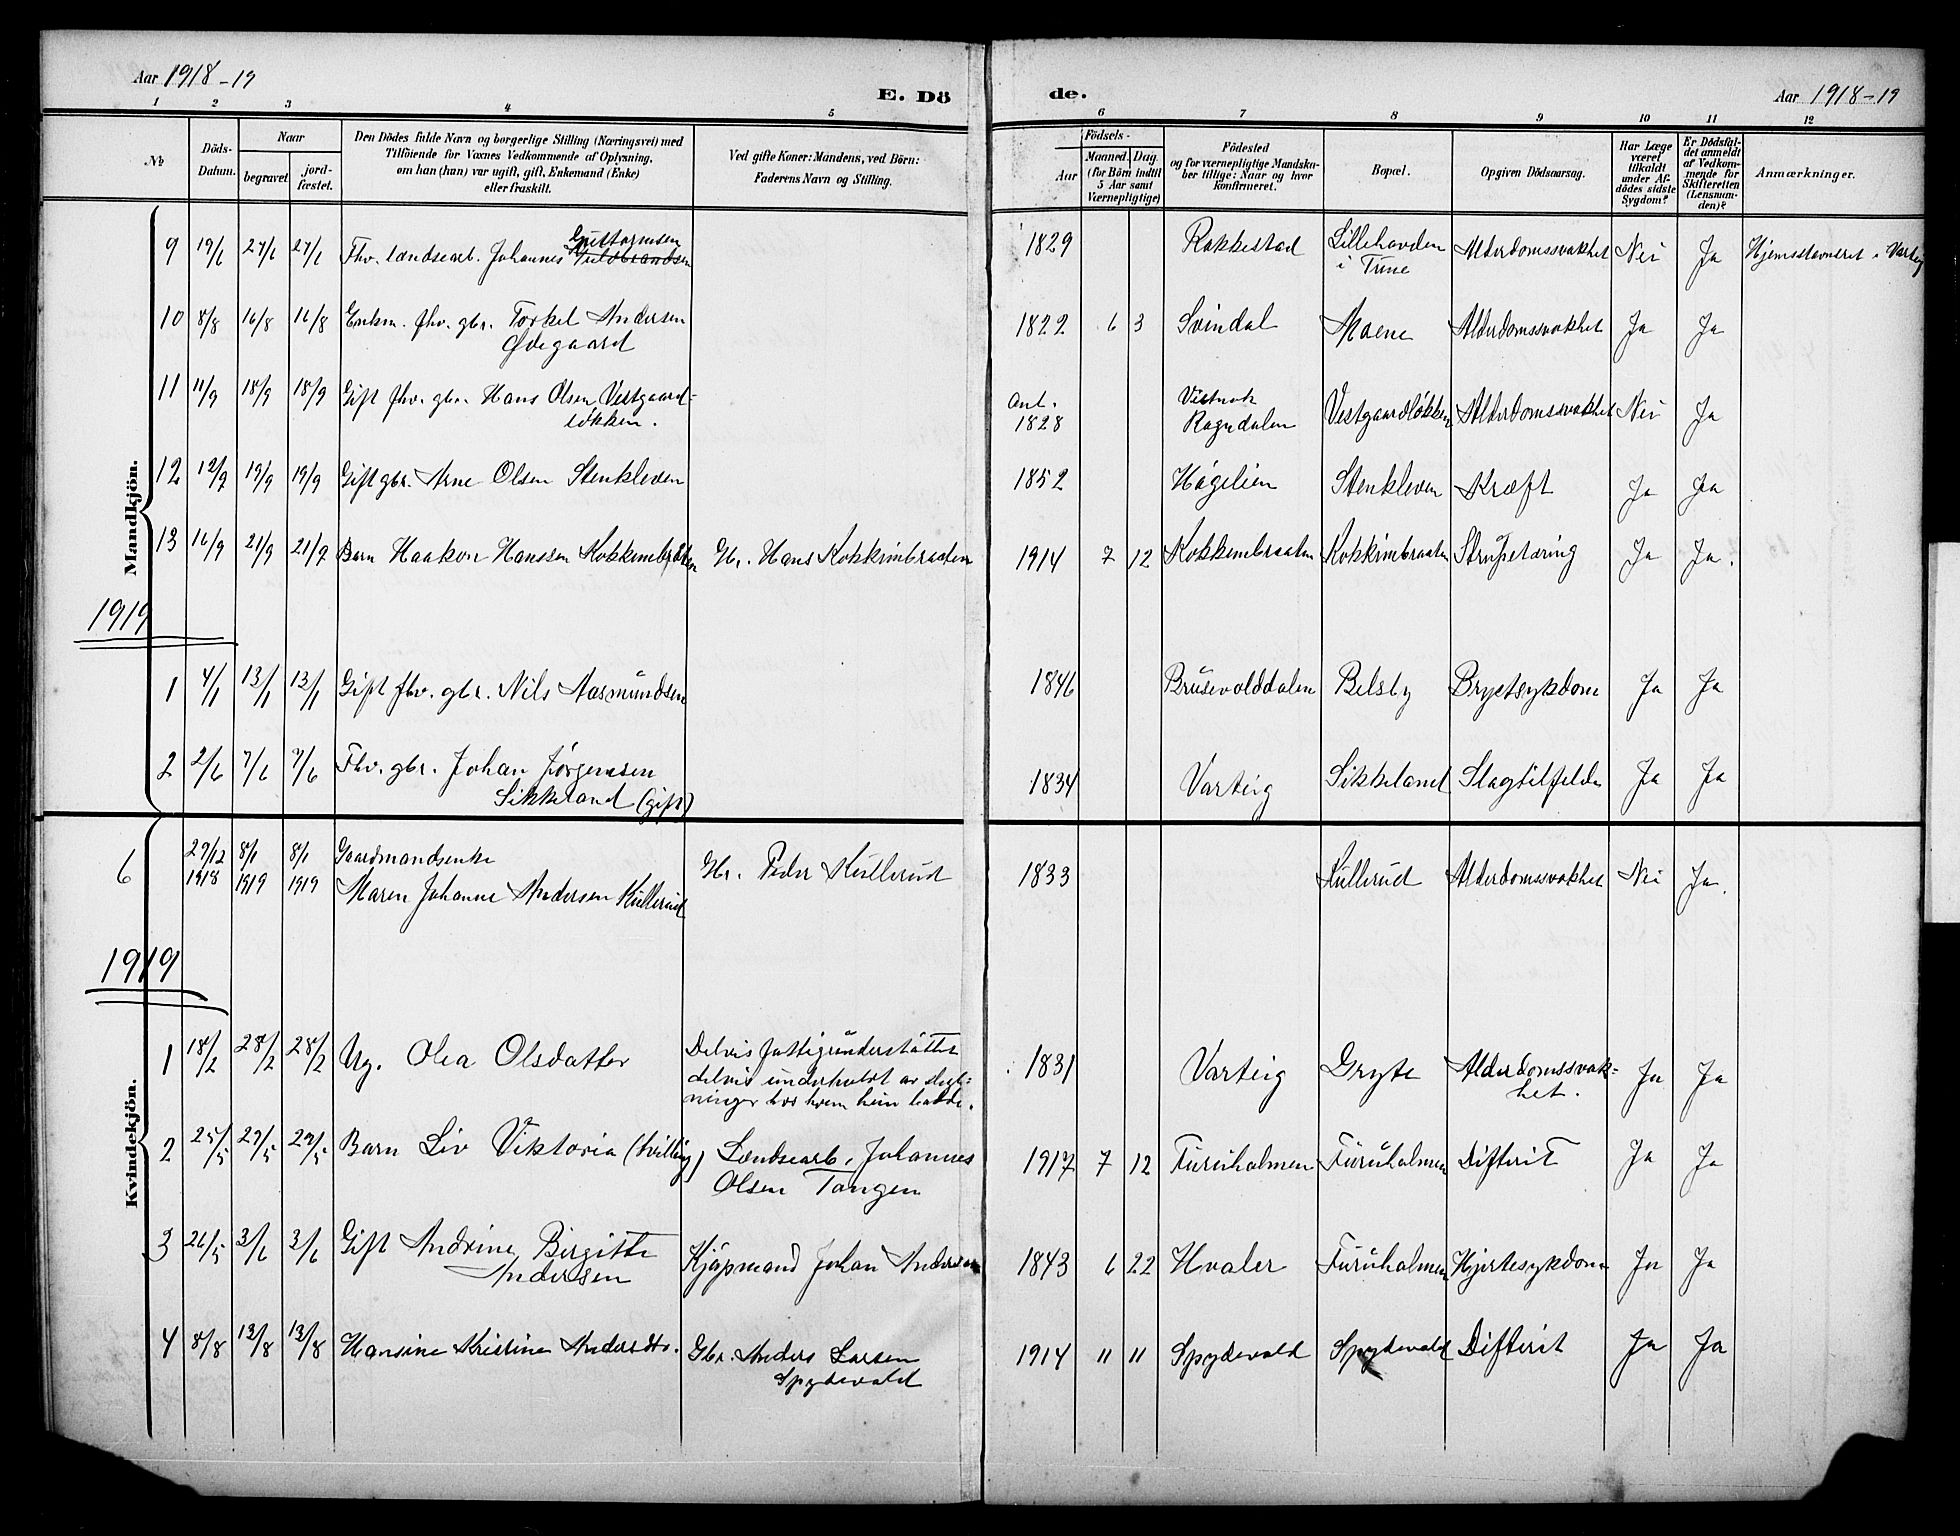 Aar 1918-19
E. Dö
de.
Aar 1918-19
1 2 3 4 5 6 7 8 9 10 11 12
№
Döds-Datum.
Naar
begravet
jord-fæstet.
Den Dödes fulde Navn og borgerlige Stilling (Næringsvei) med
Tilföiende for Voxnes Vedkommende af Oplysning,
om han (hun) var ugift, gift, Enkemand (Enke)
eller fraskilt.
Ved gifte Koner: Mandens, ved Börn:
Faderens Navn og Stilling.
Födsels-
Aar
Maaned. Dag.
(for Börn indtil
5 Aar samt
Værnepligtige)
Födested
og for værnepligtige Mandska-
ber tillige: Naar og hvor
konfirmeret.
Bopæl.
Opgiven Dödsaarsag.
Har Læge
været
tilkaldt
under Af-
dödes sidste
Sygdom?
Er Dödsfal-
det anmeldt
af Vedkom-
mende for
Skifteretten
(Lensman-
den)?
Anmærkninger.
Mandkjön.
9 19/6 27/6 27/6 Fhv. landsearb. Johannes Guttormsen 1829 Rakkestad Lillehavden i Tune Alderdomssvakhet Nei Ja Hjemstavnsret i Varteig
10 8/8 16/8 16/8 Enkm. fhv. gbr. Torkel Andersen
Ødegaard 1822 6 3 Svindal Moene Alderdomssvakhet Ja Ja
11 11/9 18/9 18/9 Gift fhv. gbr. Hans Olsen Vestgaard-
løkken. Ant. 1828 Vistnok Ragndalen Vestgaardløkken Alderdomssvakhet Nei Ja
12 12/9 19/9 19/9 Gift gbr. Arne Olsen Stenkleven 1852 Høgelien Stenkleven Kræft Ja Ja
13 16/9 21/9 21/9 Barn Haakon Hanssen Kokkimbråten Gbr. Hans Kokkimbraaten 1914 7 12 Kokkimbraaten Kokkimbraaten Strupetæring Ja Ja.
1919
1 4/1 13/1 13/1 Gift fhv. gbr. Nils Aasmundsen 1846 Brusevolddalen Belsby Brystsykdom Ja Ja
2 2/6 7/6 7/6 Fhv. gbr. Johan Jørgensen
Sikkeland (gift) 1834 Varteig Sikkeland Slagtilfelde Ja Ja
Kvindekjön.
6 29/12 1918 8/1 1919 8/1 1919 Gaardmandsenke
Maren Johanne Andersen Kullerud Gbr. Peder Kullerud 1833 Kullerud Alderdomssvakhet Nei Ja.
1919
1 18/2 28/2 28/2 Ug. Olea Olsdatter Delvis fattigunderstøttet
delvis underholdt av slegt-
ninger hos hvem hun bodde. 1831 Varteig Gryte Alderdomssvak-
het. Ja Ja
2 25/5 29/5 29/5 Barn Liv Viktoria (tvilling) Landsearb. Johannes
Olsen Tangen 1917 7 12 Furuholmen Furuholmen Difterit Ja Ja
3 26/5 3/6 3/6 Gift Andrine Birgitte
Andersen Kjøpmand Johan Andersen 1843 6 22 Hvaler Furuholmen Hjertesykdom Ja Ja
4 8/8 13/8 13/8 Hansine Kristine Andersdtr. Gbr. Anders Larsen
Spydevold 1914 11 11 Spydevold Spydevold Difterit Ja Ja